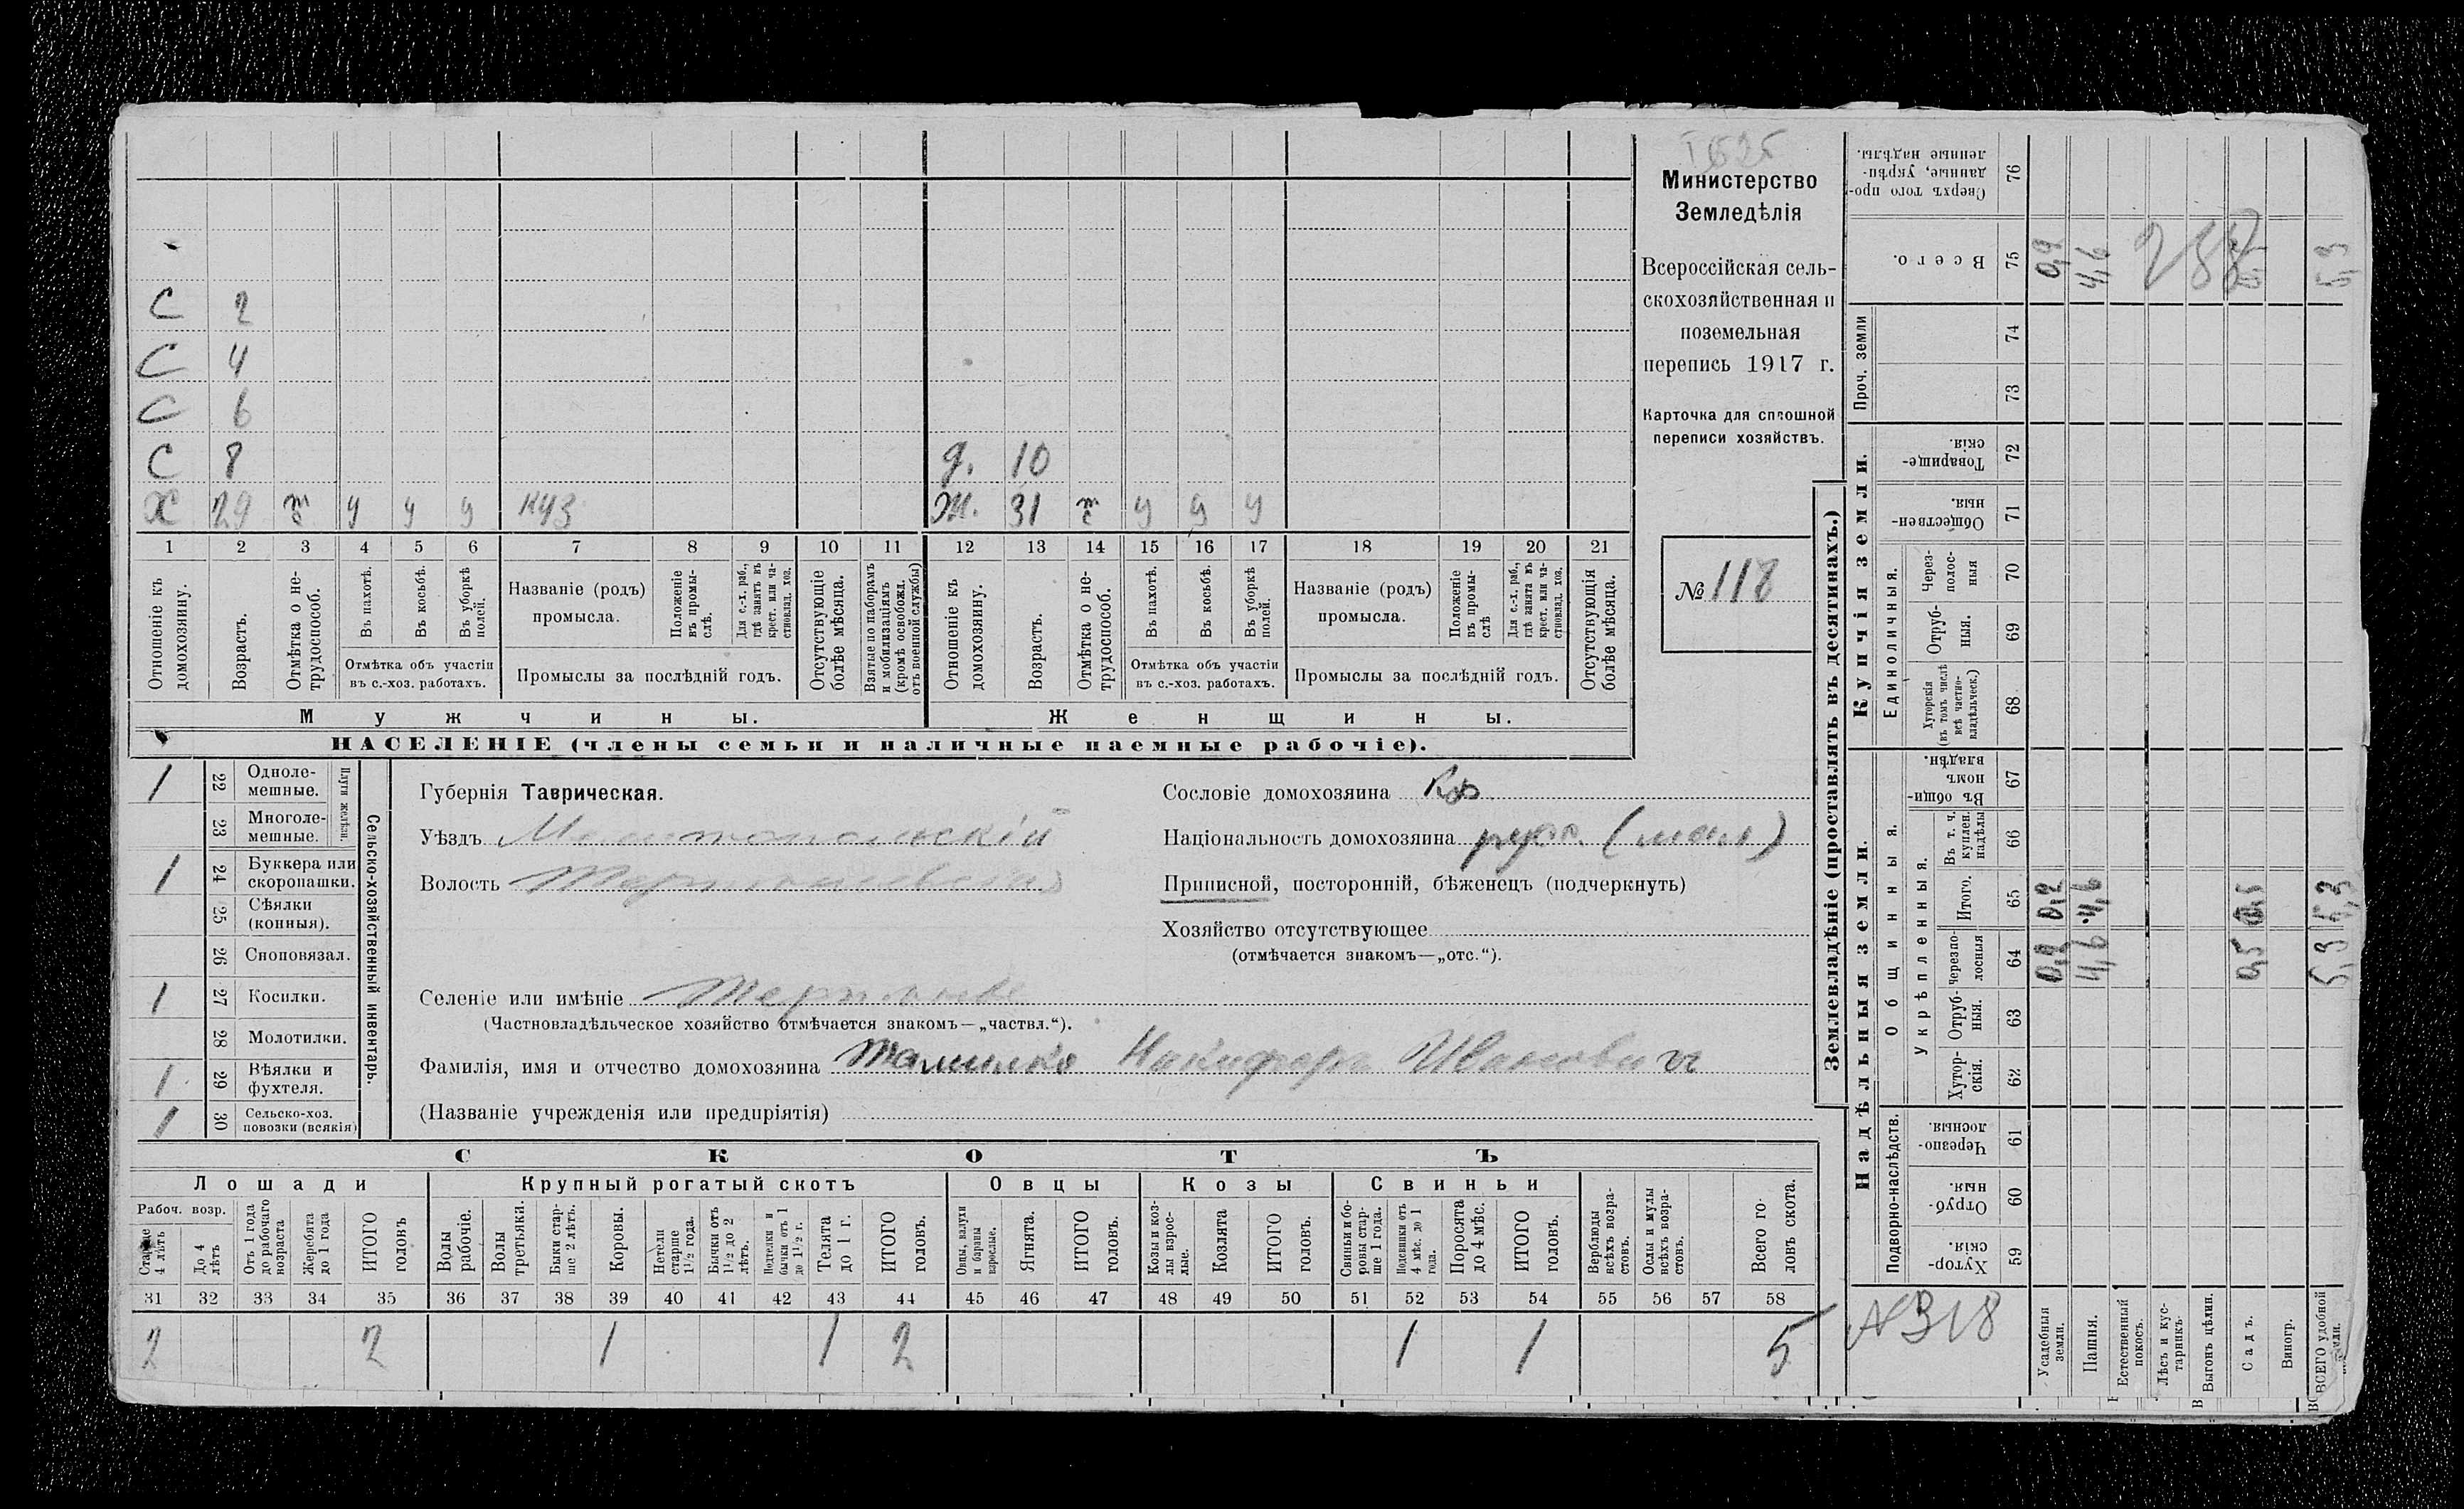 Министерство
Земледѣлія
Всероссійская сель-
скохозяйственная и
поземельная
перепись 1917 г.
Карточка для сплошной
переписи хозяйствъ.
№ 118
С 2
С 4
С 6
С 8 д. 10
Х 29 у у у куз Ж. 31 у у у
1 2 3 4 5 6 7 8 9 10 11 12 13 14 15 16 17 18 19 20 21
Отношеніе къ домохозяину.
Возрастъ.
Отмѣтка о не-трудоспособ.
Въ пахотѣ.
Въ косьбѣ.
Въ уборкѣ полей.
Отмѣтка объ участіи въ с.-хоз. работахъ.
Названіе (родъ) промысла.
Положеніе въ промы-слѣ.
Для с.-х. раб., гдѣ занятъ въ крест. или ча-стновлад. хоз.
Промыслы за послѣдній годъ.
Отсутствующіе болѣе мѣсяца.
Взятые по наборамъ и мобилизаціямъ (кромѣ освобожд. отъ военной службы)
Отношеніе къ домохозяину.
Возрастъ.
Отмѣтка о не-трудоспособ.
Въ пахотѣ.
Въ косьбѣ.
Въ уборкѣ полей.
Отмѣтка объ участіи въ с.-хоз. работахъ.
Названіе (родъ) промысла.
Положеніе въ промы-слѣ
Для с.-х. раб., гдѣ занята въ крест. или ча-стновлад. хоз.
Промыслы за послѣдній годъ.
Отсутствующія болѣе мѣсяца.
Мужчины. Женщины.
НАСЕЛЕНІЕ (члены семьи и наличные наемные рабочіе).
Сельско-хозяйственный инвентарь.
Плуги желѣзн.
1 22 Одноле-мешные.
23 Многоле-мешные.
1 24 Буккера или скоропашки.
25 Сѣялки (конныя).
26 Сноповязал.
1 27 Косилки.
28 Молотилки.
1 29 Вѣялки и фухтеля.
1 30 Сельско-хоз. повозки (всякія)
Губернія Таврическая.
Уѣздъ Мелитопольскій
Волость
Селеніе или имѣніе
(Частновладѣльческое хозяйство отмѣчается знакомъ—„частвл.“).
Фамилія, имя и отчество домохозяина Никифоръ Ивановичъ
(Названіе учрежденія или предпріятія)
Сословіе домохозяина Кр
Національность домохозяина русс. (мал)
Приписной, посторонній, бѣженецъ (подчеркнуть)
Хозяйство отсутствующее
(отмѣчается знакомъ—„отс.“).
СКОТЪ
Лошади Крупный рогатый скотъ Овцы Козы Свиньи
Рабоч. возр.
Старше 4 лѣтъ
До 4 лѣтъ
Отъ 1 года до рабочаго возраста
Жеребята до 1 года
ИТОГО головъ
Волы рабочіе.
Волы третьяки.
Быки стар-ше 2 лѣтъ.
Коровы.
Нетели старше 1½ года.
Бычки отъ 1½ до 2 лѣтъ.
Подтелки и бычки отъ 1 до 1½ г.
Телята до 1 г.
ИТОГО головъ.
Овцы, валухи и бараны взрослые.
Ягнята.
ИТОГО головъ.
Козы и коз-лы взрос-лые.
Козлята
ИТОГО головъ.
Свиньи и бо-ровы стар-ше 1 года.
Подсвинки отъ 4 мѣс. до 1 года.
Поросята до 4 мѣс.
ИТОГО головъ.
Верблюды всѣхъ возра-стовъ.
Ослы и мулы всѣхъ возра-стовъ.
Всего го-ловъ скота.
31 32 33 34 35 36 37 38 39 40 41 42 43 44 45 46 47 48 49 50 51 52 53 54 55 56 57 58
2 2 1 1 2 1 1 5
Землевладѣніе (проставлять въ десятинахъ.)
Сверхъ того про-данные, укрѣп-ленные надѣлы. 76
Всего. 75
Проч. земли 74 73
Купчія земли.
Товарище-скія. 72
Обществен-ныя. 71
Единоличныя.
Через-полос-ныя 70
Отруб-ныя. 69
Хуторскія (въ томъ числѣ всѣ частно-владѣльческ.) 68
Надѣльныя земли.
Общинныя.
Въ общин-номъ владѣн. 67
Укрѣпленныя.
Въ т. ч. куплен. надѣлы 66
Итого. 65
Черезпо-лосныя 64
Отруб-ныя. 63
Хутор-скія. 62
Подворно-наслѣдств.
Черезпо-лосныя. 61
Отруб-ныя. 60
Хутор-скія. 59
Усадебныя земли. 0,2 0,2 0,2
Пашня. 4,6 4,6 4,6
Естественный покосъ.
Лѣсъ и кус-тарникъ.
Выгонъ цѣлин.
Садъ. 0,5 0,5
Виногр.
ВСЕГО удобной земли. 5,3 5,3 5,3
288
№ 318